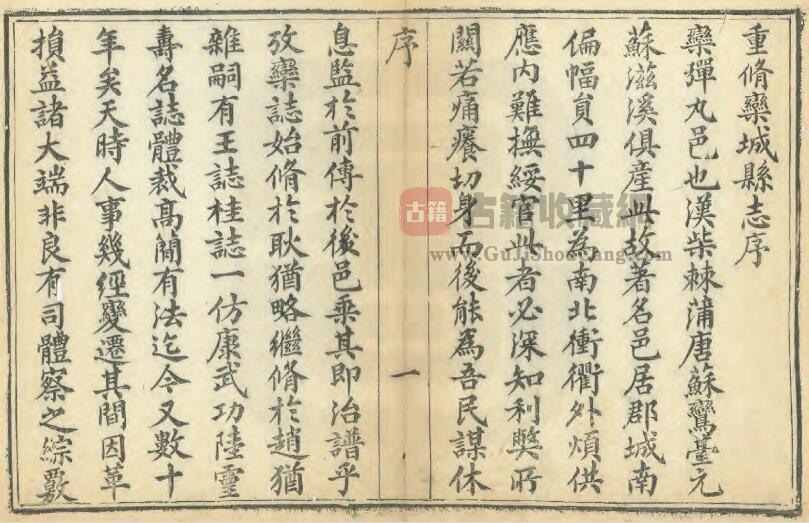 重脩欒城縣志序
欒彈丸邑也漢柴棘蒲唐蘇鸞臺元
蘇滋溪俱產此故著名邑居郡城南
偏幅員四十里為南北衝衢外煩供
應内難撫綏官此者必深知利獘所
關若痛癢切身而後能為吾民謀休
序 一
息監於前傳於後邑乘其即治譜乎
攷欒誌始脩於耿猶略繼脩於趙猶
雜嗣有王誌桂誌一仿康武功陸靈
壽名誌體裁高簡有法迄今又數十
年矣天時人事幾經變遷其間因革
損益諸大端非良有司體察之綜覈
古籍
古籍收藏网
www.GuJiShouCang.com